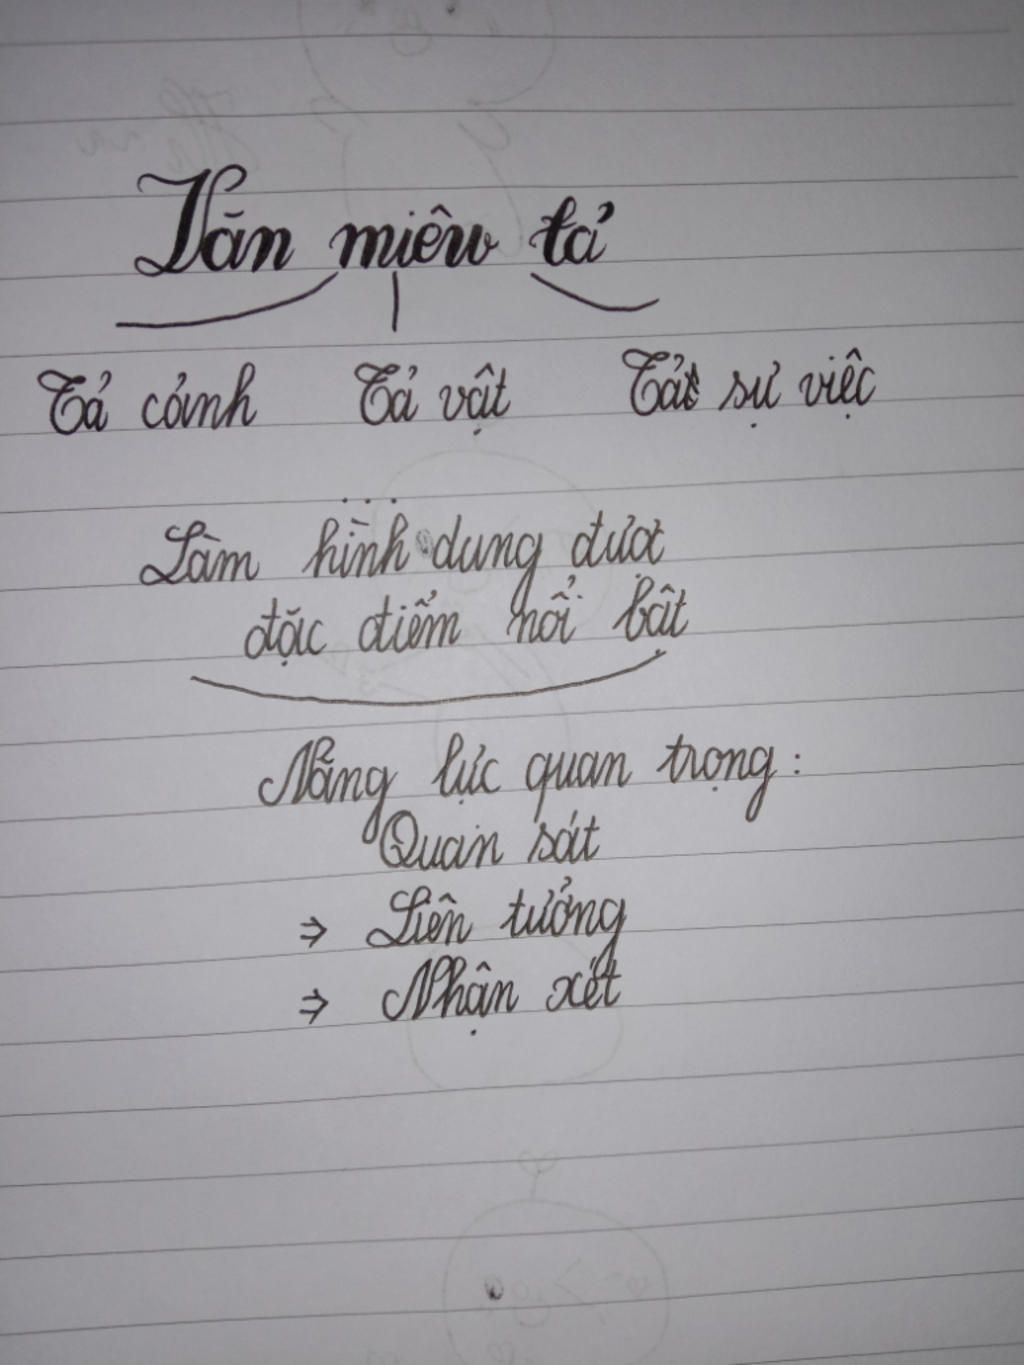 Văn miêu tả
Tả cảnh Tả vật Tả sự việc
...
Làm hình dung được
đặc điểm nổi bật
Năng lực quan trọng:
Quan sát
⇒ Liên tưởng
⇒ Nhận xét